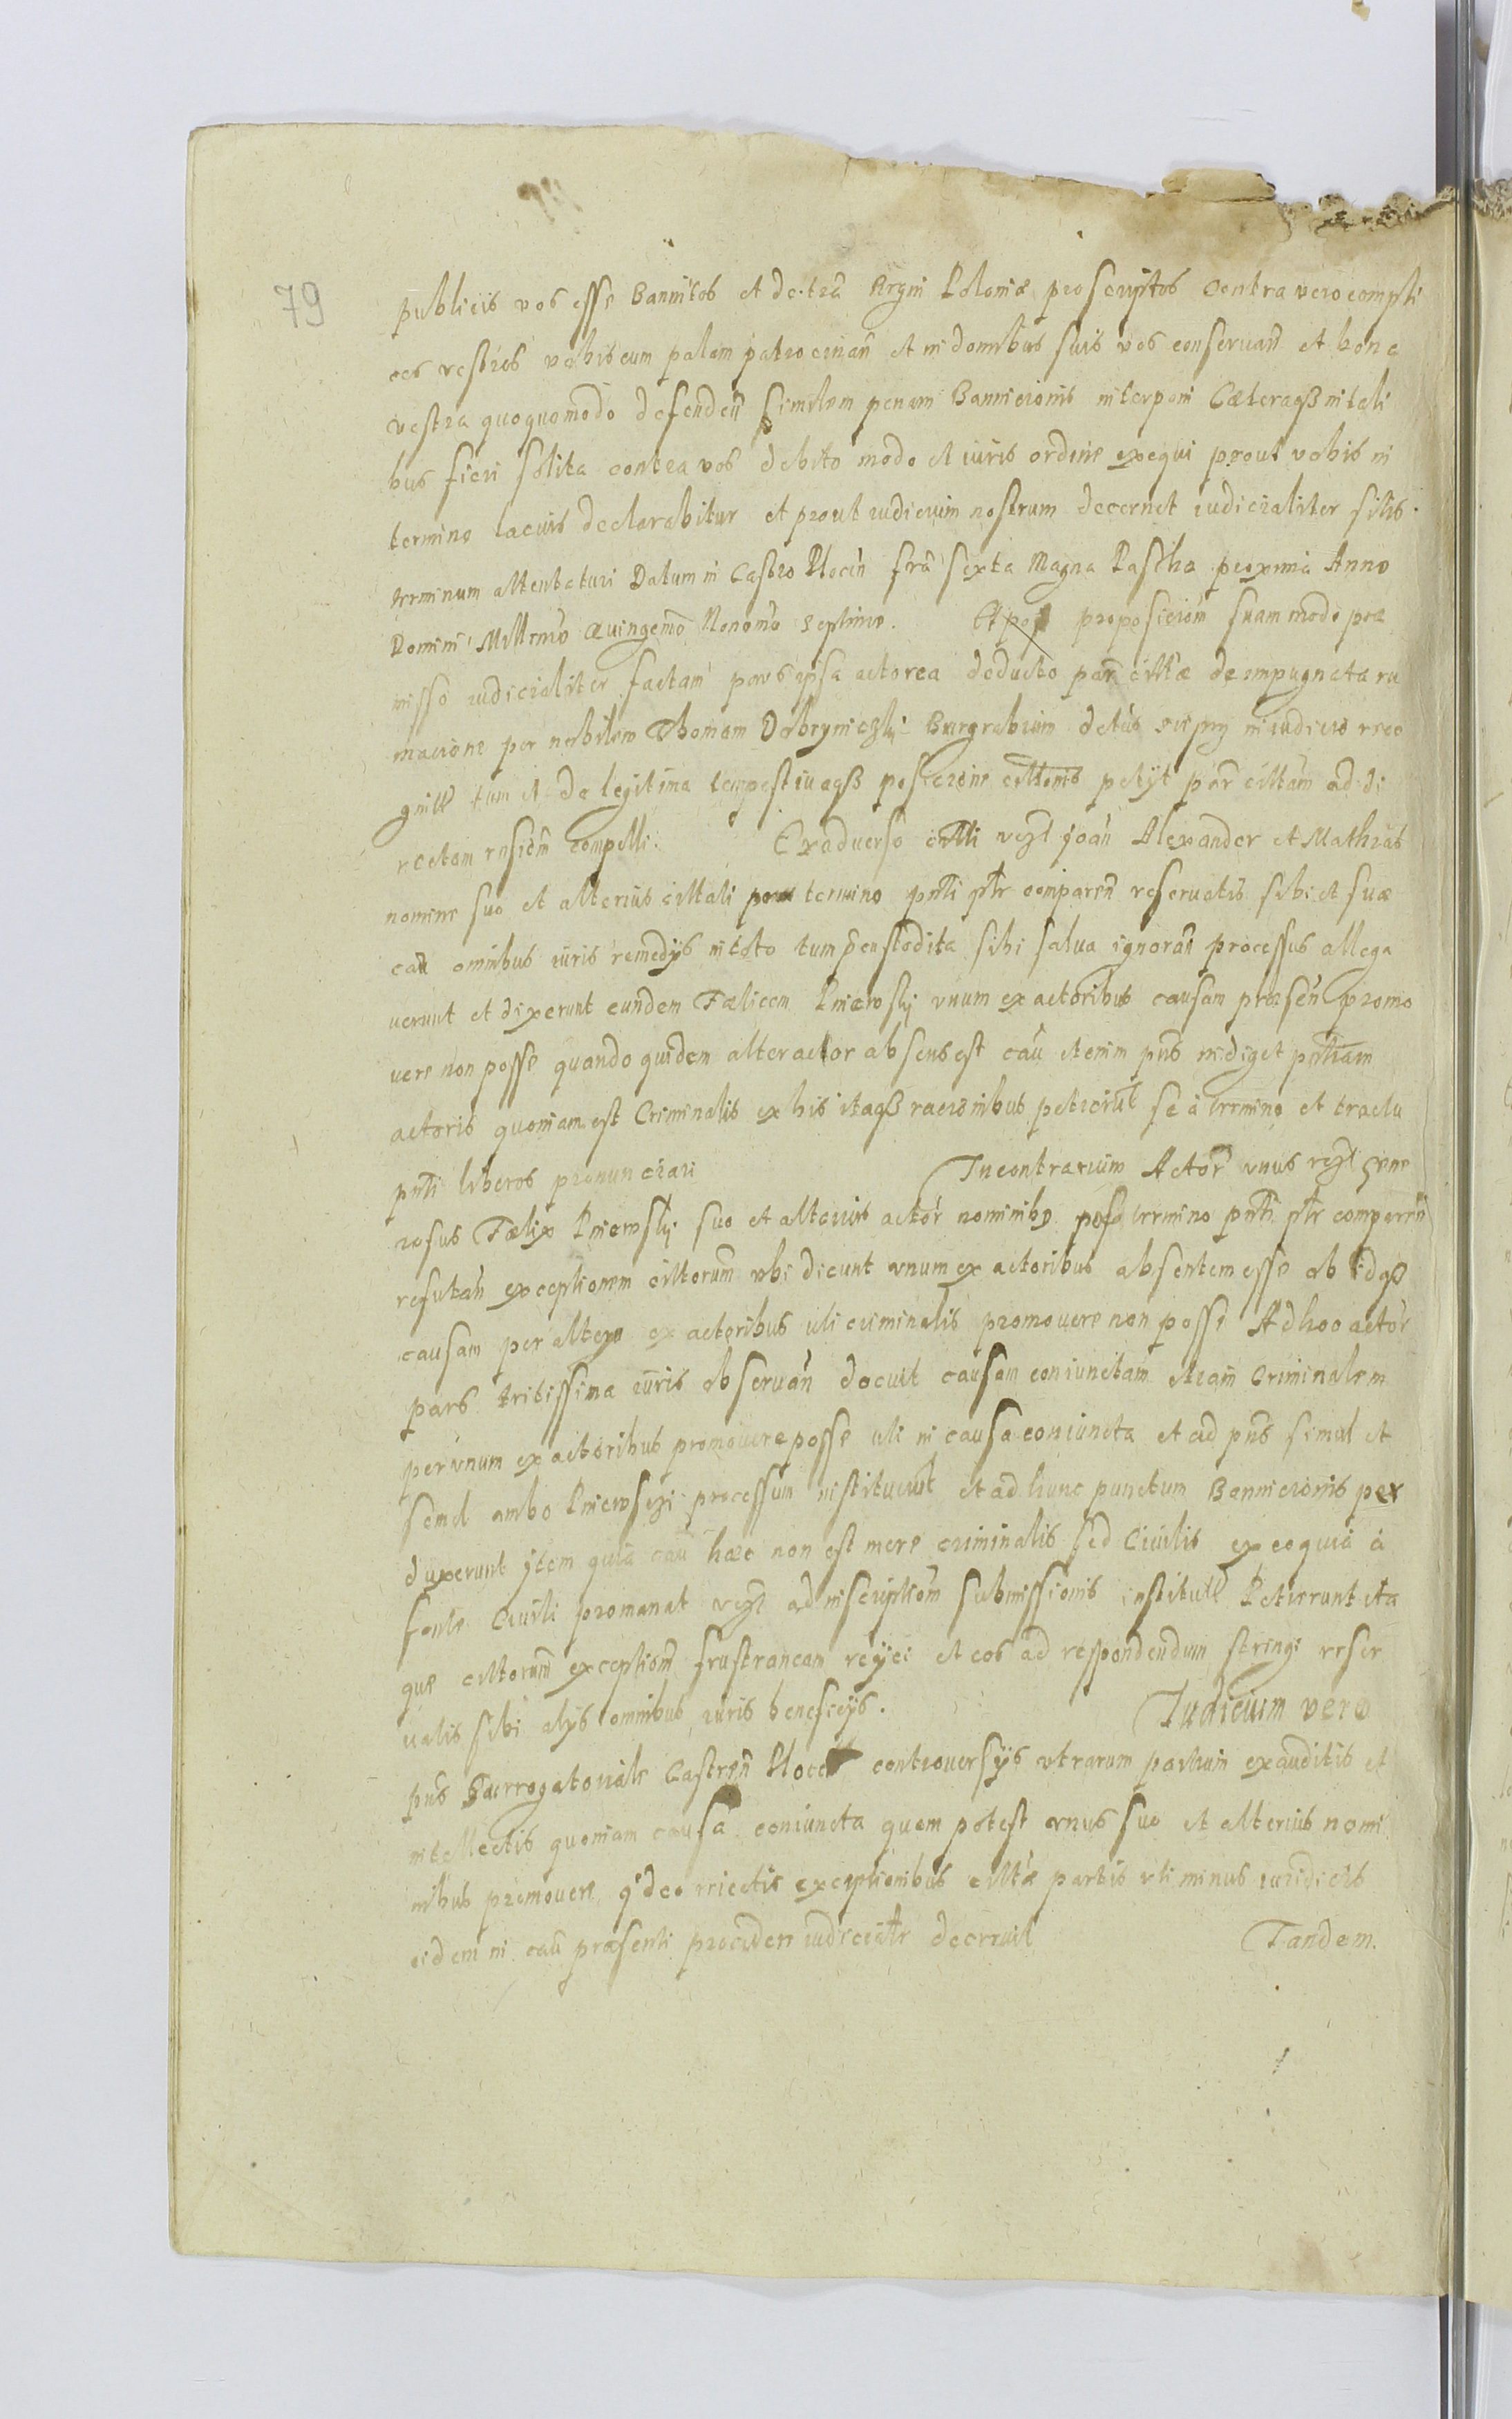 79
publicis vos esse Bannitos et de tra Regni Poloniæ proscriptos Contra vero compli
ces vestros vobiscum palam patrocinan et in domibus suis vos conseruan et bona
vestra quoquomodo defenden similem penam Bannicionis interponi Cæteraqß in tali
bus fieri solita contra vos debito modo et iuris ordine exequi prout vobis in
termino lacius declarabitur et prout iudicium nostrum decernet iudicialiter sitis
terminum attentaturi Datum in Castro Plocen fria sexta Magna Pascha proxima Anno
Domini Millmo Quingemo Nonomo Septimo. Et post proposiciom suam modo præ
misso iudicialiter factam pars ipsa actorea deducto par citt'æ de impugnata ru
macione per nobilem Thomam Dobrzyniczki Burgrabium in iudicio reco
gnitt tum et de legitima tempestiuaqß posicione cittonis petyt par cittam ad di
rectam rnsiom compelli. Exaduerso citti vezt Joan Alexander et Mathias
nomine suo et alterius cittati termino pnti ptr comparen reseruatis sibi et suæ
cau omnibus iuris remedys in toto tum sibi salua ignoran processus allega
uerunt et dixerunt eundem Fælicem Kniewski vnum ex actoribus causam præsen promo
uere non posse quando quidem alter actor absens est cau etenim pns indiget pntiam
actoris quoniam est Criminalis ex his itaqß racionibus petierut se a termino et tractu
pnti liberos pronunciari In contrarium Actor vnus vezt gene
rosus Fælix Kniewski suo et alterius actor nominibus termino pnti ptr comparen
refutan exceptionem cittorum vbi dicunt vnum ex actoribus absentem esse ob idqß
causam per alterum ex actoribus uti criminalis promouere non posse Ad hoc actor
pars tritissima iuris obseruan docuit causam coniunctam etiam Criminalem
per vnum ex actoribus promouere posse uti in causa coniuncta et ad pns simul et
semel ambo Kniewsczi processum instituerut et ad hunc punctum Bannicionis per
duxerunt item quia cau hæc non est mere criminalis sed Ciuilis ex eo quia a
fonte Ciuili promanat vezt ad inscriptiom submissionis institutt Petierunt ita
que cittorum exceptiom frustraneam reyci et eos ad respondendum stringi reser
uatis sibi alys omnibus iuris beneficys. Iudicium vero
pns Surrogatoriale Castren Plocen controuersys vtrarum partium exauditis et
intellectis quoniam causa coniuncta quam potest vnus suo et alterius nomi
nibus promouere ideo reiectis exceptionibus cittæ partis vti minus iuridicis
eidem in cau præsenti procedere iudicialtr decreuit Tandem.